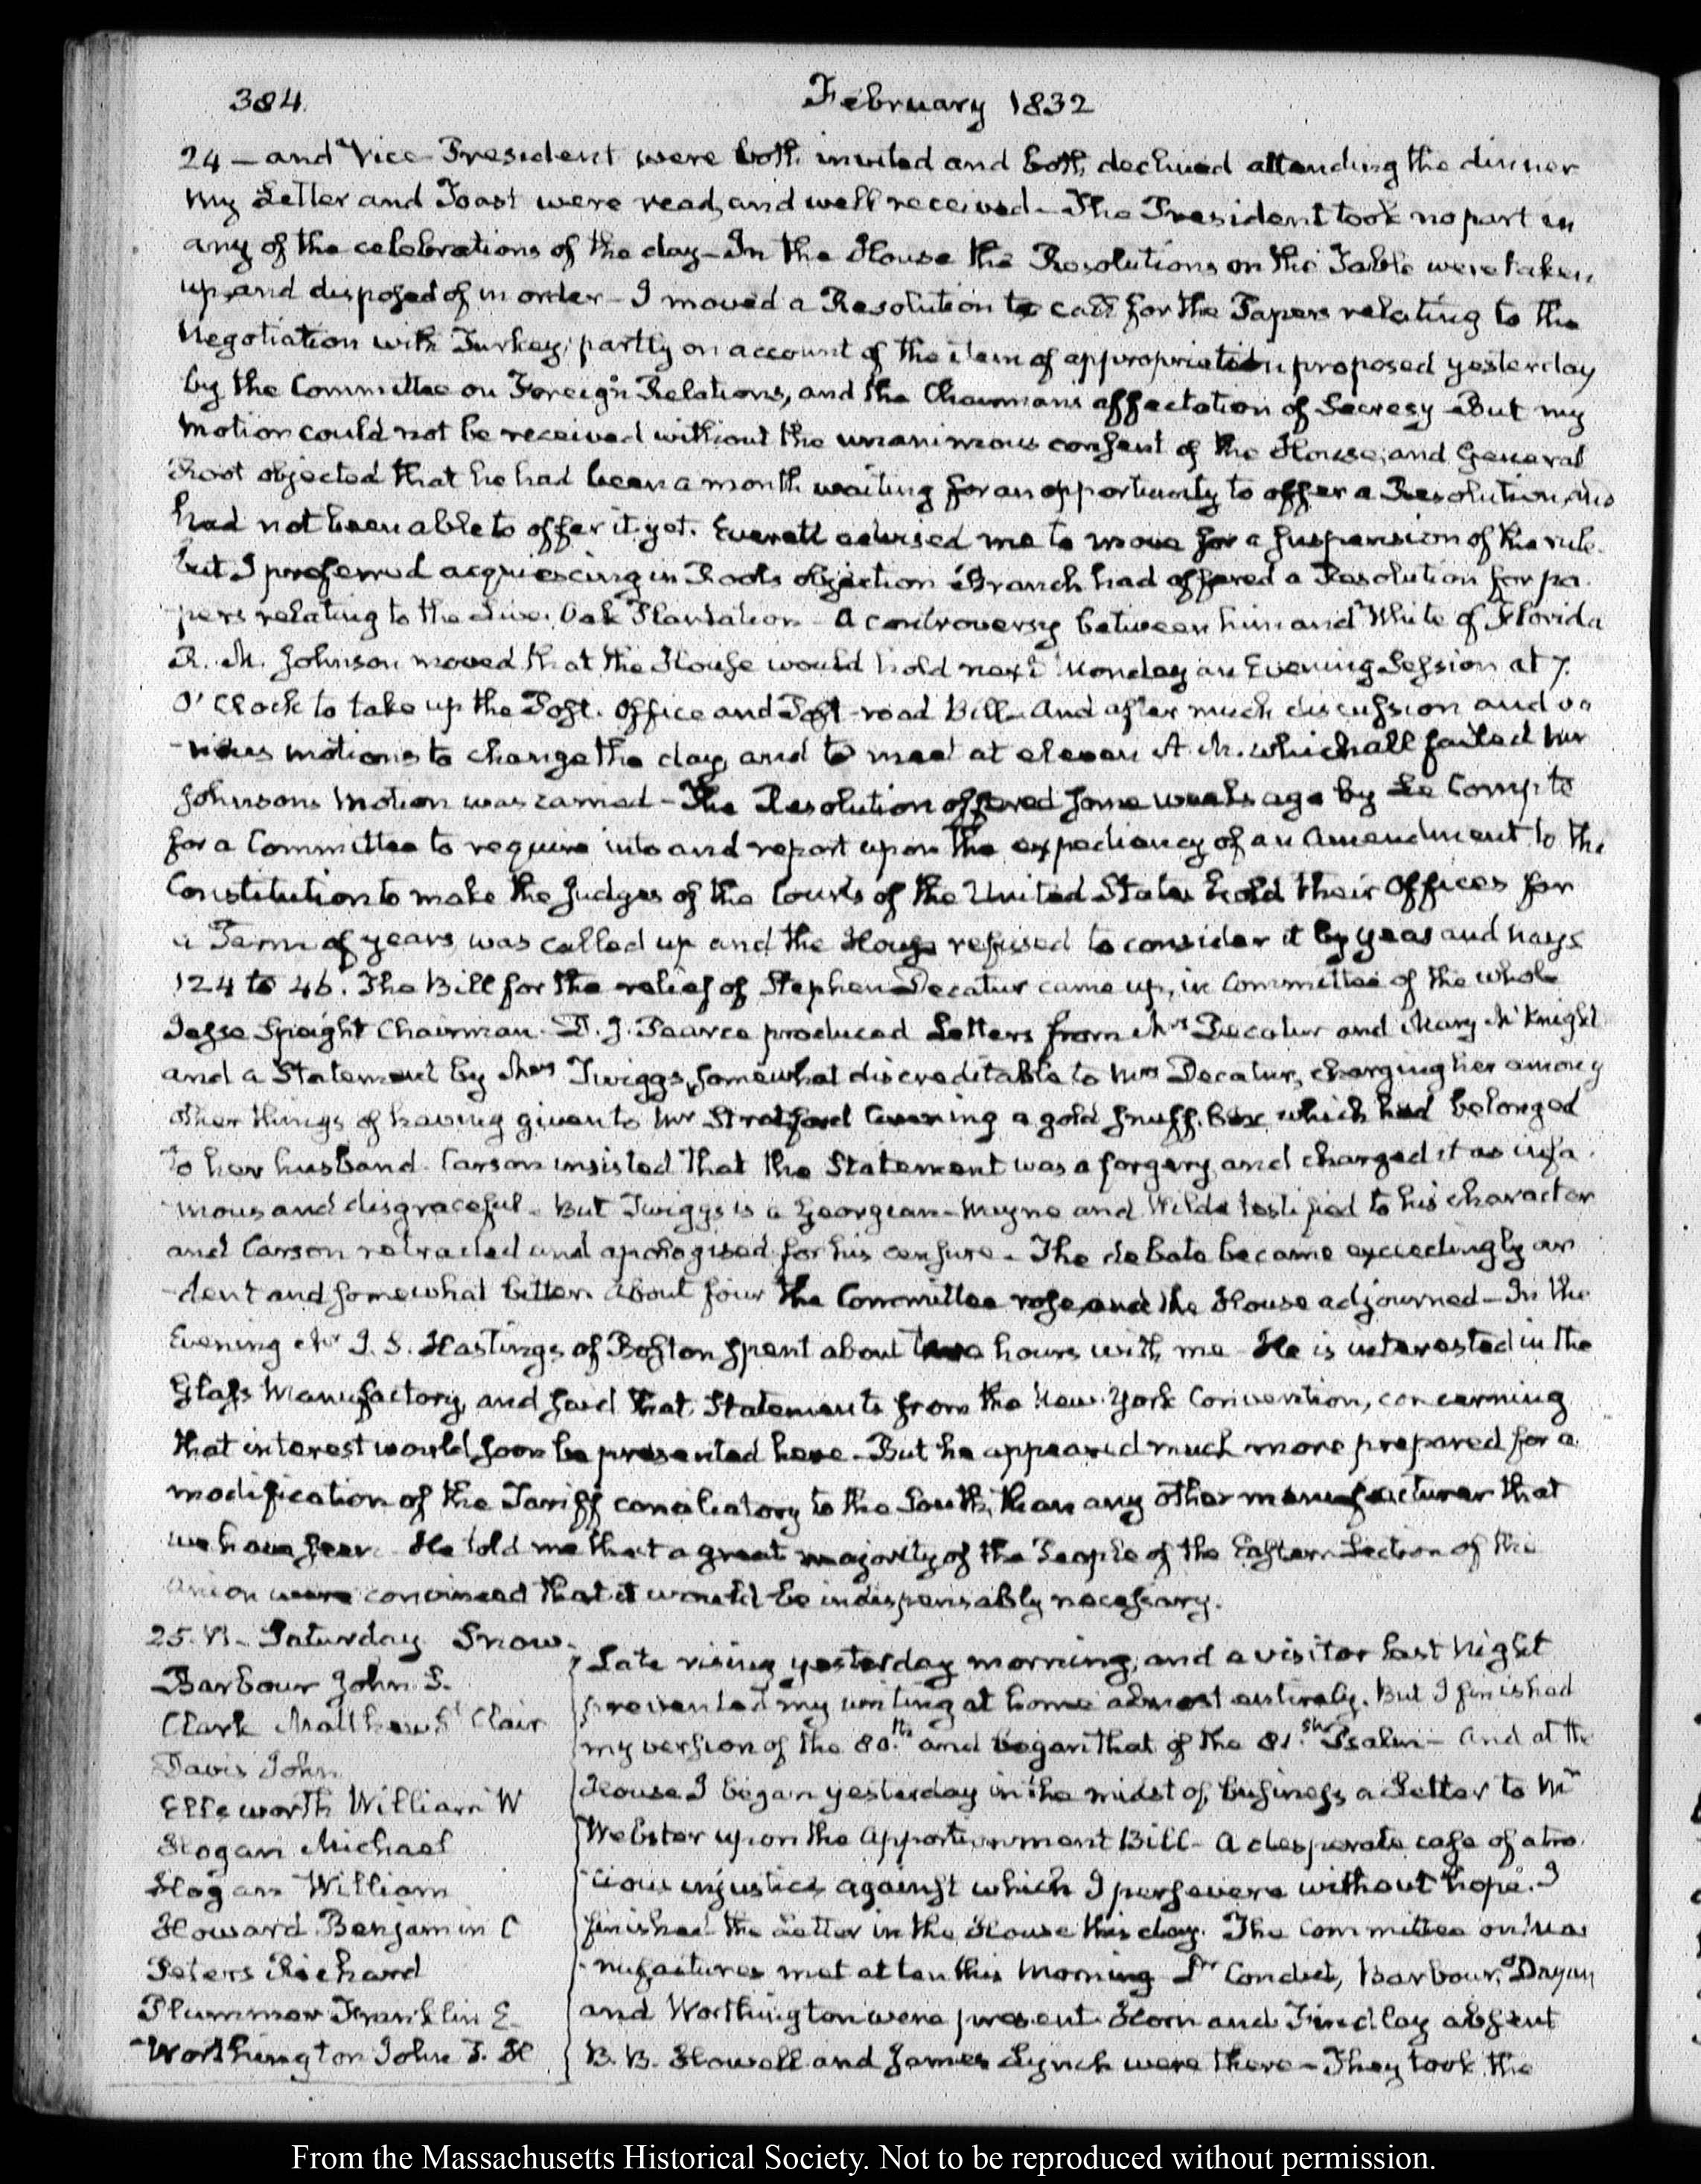 384.
February 1832
24 — and Vice-President were both invited and both declined attending the dinner
my Letter and Toast were read, and well received — The President took no part in
any of the celebrations of the day — In the House the Resolutions on the Table were taken
up, and disposed of in order — I moved a Resolution to call for the Papers relating to the
Negotiation with Turkey, partly on account of the item of appropriation proposed yesterday
by the Committee on Foreign Relations, and the Chairman's affectation of Secresy — But my
motion could not be received without the unanimous consent of the House, and General
Root objected that he had been a month waiting for an opportunity to offer a Resolution, and
had not been able to offer it yet. Everett advised me to move for a suspension of the rule.
but I preferred acquiescing in Roots objection Branch had offered a Resolution for pa-
-pers relating to the Live Oak Plantation — A controversy between him and White of Florida
R. M. Johnson moved that the House would hold next Monday an Evening Session at 7.
O'Clock to take up the Post-Office and Post-road Bill — And after much discussion and va
-rious motions to change the day, and to meet at eleven A.M. which all failed Mr
Johnsons motion was carried — The Resolution offered some weeks ago by Le Compte
for a Committee to require into and report upon the expediency of an Amendment to the
Constitution to make the Judges of the Courts of the United States hold their Offices for
a Term of years, was called up and the House refused to consider it by yeas and nays
124 to 46. The Bill for the relief of Stephen Decatur came up, in Committee of the whole
Jesse Speight Chairman. D. J. Pearce produced Letters from Mrs Decatur and Mary McKnight
and a Statement by Twiggs, somewhat discreditable to Mrs Decatur, charging her among
other things of having given to Mr Stratford Canning a gold snuff-box which had belonged
to her husband. Carson insisted that the Statement was a forgery, and charged it as infa-
-mous and disgraceful — But Twiggs is a Georgian — Wayne and Wilde testified to his character
and Carson retracted and apologised for his censure — The debate became exceedingly ar
-dent and somewhat bitter. About four the Committee rose, and the House adjourned — In the
Evening Mr J. S. Hastings of Boston spent about two hours with me He is interested in the
Glass Manufactory, and said that Statements from the New-York Convention, concerning
that interest would soon be presented here — But he appeared much more prepared for a
modification of the Tariff conciliatory to the South, than any other manufacturer that
we have seen He told me that a great majority of the People of the Eastern Section of the
Union were convinced that it would be indispensably necessary.
25. Saturday Snow.
Barbour John S.
Clark Matthew St Clair
Davis John
Ellsworth William W
Hogan Michael
Hogan William
Howard Benjamin C
Peters Richard
Plummer Franklin E.
Worthington John T. H
Late rising yesterday morning, and a visitor last Night
prevented my writing at home almost entirely. But I finished
my version of the 80.th and began that of the 81.st Psalm — And at the
House I began yesterday in the midst of business a Letter to Mr
Webster upon the Apportionment Bill — A desperate case of atro-
-cious injustice against which I persevere without hope. I
finished the Letter in the House this day. The Committee on Ma
-nufactures met at ten this Morning Dr Condict, Barbour, Dayan
and Worthington were present. Horn and Findlay absent
B. B. Howell and James Lynch were there — They took the
From the Massachusetts Historical Society. Not to be reproduced without permission.